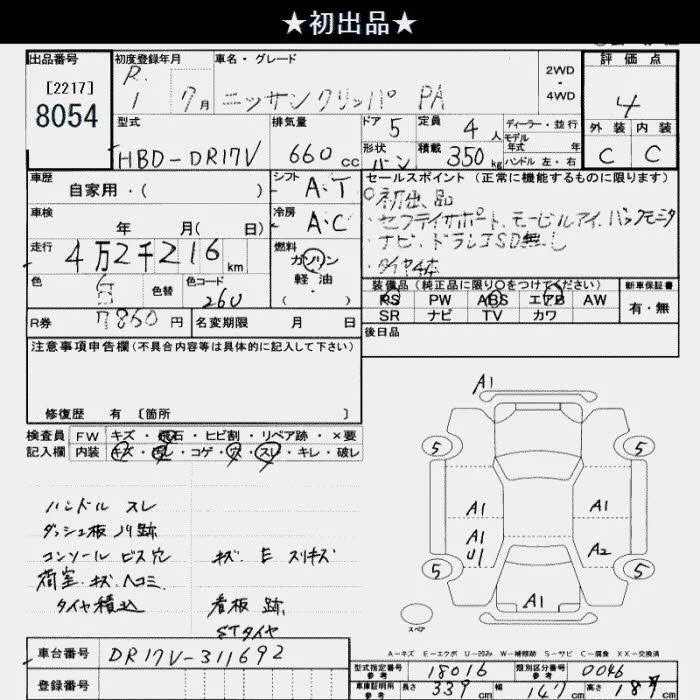 ★初出品★
出品番号
[2217]
8054
初度登録年月
R. 1 7月
車名・グレード
ニッサンクリッパー PA
2WD
・
4WD
評価点
4
外装 内装
C C
型式
HBD-DR17V
排気量
660 cc
ドア 5
定員 4人
ディーラー・並行
モデル年式 年
形状 バン
積載 350 kg
ハンドル 左・右
車歴
自家用・( )
シフト AT
セールスポイント (正常に機能するものに限ります)
○初出品
・セフティサポート、モービルアイ、バックモニタ
・ナビ、ドラレコSD無し
・タイヤ4本
車検
年 月( 日)
冷房 AC
走行
4万2千216km
燃料
ガソリン
軽油
( )
色 白
色替
色コード 26U
装備品 (純正品に限り○をつけてください)
PS PW ABS エアB AW
SR ナビ TV カワ
新車保証書
有・無
R券 7860円
名変期限 月 日
後日品
注意事項申告欄(不具合内容等は具体的に記入して下さい)
修復歴 有 〔箇所 〕
検査員記入欄
FW キズ・飛石・ヒビ割・リペア跡・×要
内装 キズ・汚レ・コゲ・穴・スレ・キレ・破レ
ハンドル スレ
ダッシュ板 ノリ跡
コンソール ビス穴
荷室・キズ、ヘコミ
タイヤ積込
キズ、E スリキズ
看板 跡
STタイヤ
A1
5 5
A1 A1
A1
U1
A2
5 5
A1
スペア
A-キズ E-エクボ U-凹み W-補修跡 S-サビ C-腐食 XX-交換済
車台番号
DR17V-311692
登録番号
型式指定番号 参考 18016
類別区分番号 参考 0046
車庫証明用 参考 長さ 339cm 幅 147cm 高さ cm